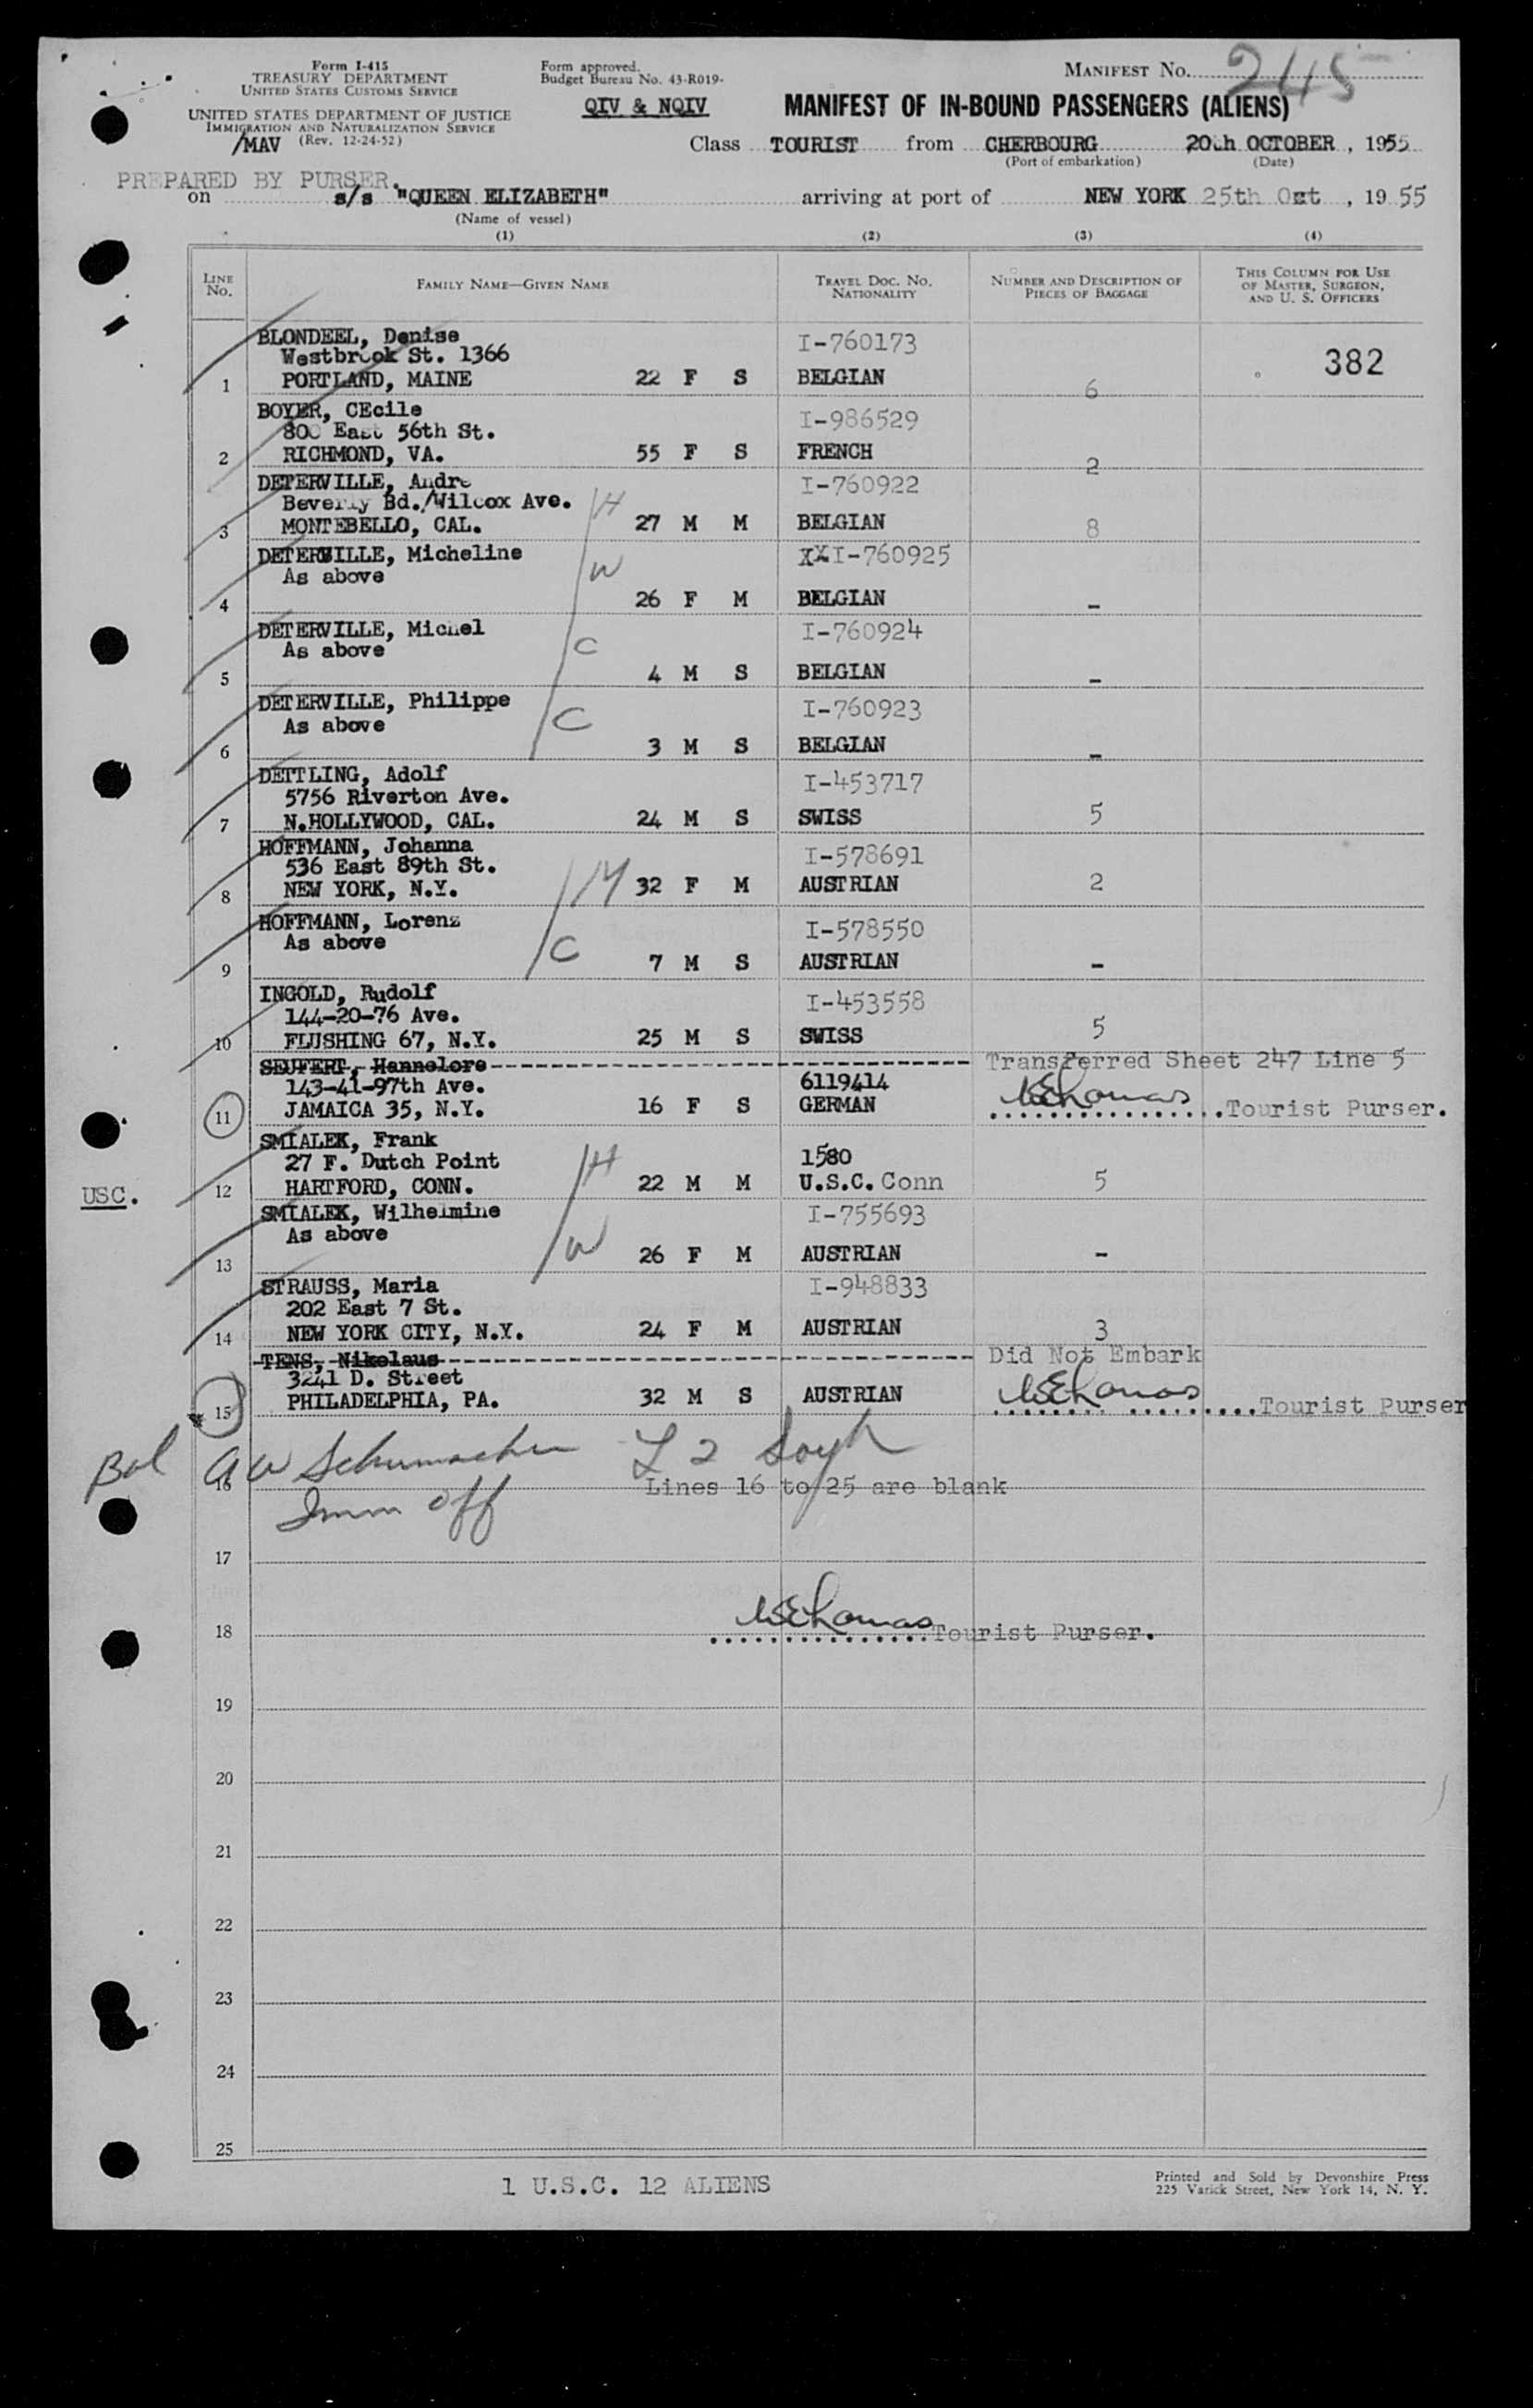 Form I-415
TREASURY DEPARTMENT
UNITED STATES CUSTOMS SERVICE
UNITED STATES DEPARTMENT OF JUSTICE
IMMIGRATION AND NATURALIZATION SERVICE
/MAV (Rev. 12-24-52)
Form approved.
Budget Bureau No. 43-R019-
QIV & NQIV
MANIFEST NO. 245
MANIFEST OF IN-BOUND PASSENGERS (ALIENS)
Class TOURIST from CHERBOURG 20th OCTOBER, 1955
(Port of embarkation) (Date)
PREPARED BY PURSER.
on s/s "QUEEN ELIZABETH" arriving at port of NEW YORK 25th Oct, 1955
(Name of vessel)
(1) (2) (3) (4)
LINE NO. FAMILY NAME—GIVEN NAME TRAVEL DOC. NO. NATIONALITY NUMBER AND DESCRIPTION OF PIECES OF BAGGAGE THIS COLUMN FOR USE OF MASTER, SURGEON, AND U. S. OFFICERS
BLONDEEL, Denise I-760173
Westbrook St. 1366 382
1 PORTLAND, MAINE 22 F S BELGIAN 6
BOYER, CEcile I-986529
800 East 56th St.
2 RICHMOND, VA. 55 F S FRENCH 2
DETERVILLE, Andre I-760922
Beverly Bd./Wilcox Ave. H
3 MONTEBELLO, CAL. 27 M M BELGIAN 8
DETERVILLE, Micheline XXI-760925
As above W
4 26 F M BELGIAN -
DETERVILLE, Michel I-760924
As above C
5 4 M S BELGIAN -
DETERVILLE, Philippe I-760923
As above C
6 3 M S BELGIAN -
DETTLING, Adolf I-453717
5756 Riverton Ave.
7 N.HOLLYWOOD, CAL. 24 M S SWISS 5
HOFFMANN, Johanna I-578691
536 East 89th St.
8 NEW YORK, N.Y. M 32 F M AUSTRIAN 2
HOFFMANN, Lorenz I-578550
As above C
9 7 M S AUSTRIAN -
INGOLD, Rudolf I-453558
144-20-76 Ave.
10 FLUSHING 67, N.Y. 25 M S SWISS 5
SEUFERT, Hannelore Transferred Sheet 247 Line 5
143-41-97th Ave. 6119414
11 JAMAICA 35, N.Y. 16 F S GERMAN Tourist Purser.
SMIALEK, Frank
27 F. Dutch Point H 1580
USC. 12 HARTFORD, CONN. 22 M M U.S.C. Conn 5
SMIALEK, Wilhelmine I-755693
As above W
13 26 F M AUSTRIAN -
STRAUSS, Maria I-948833
202 East 7 St.
14 NEW YORK CITY, N.Y. 24 F M AUSTRIAN 3
TENS, Nikolaus Did Not Embark
3241 D. Street
15 PHILADELPHIA, PA. 32 M S AUSTRIAN Tourist Purser
A W Schumacher
16 Lines 16 to 25 are blank
Imm Off
17
18 Tourist Purser.
19
20
21
22
23
24
25
1 U.S.C. 12 ALIENS
Printed and Sold by Devonshire Press
225 Varick Street, New York 14, N. Y.